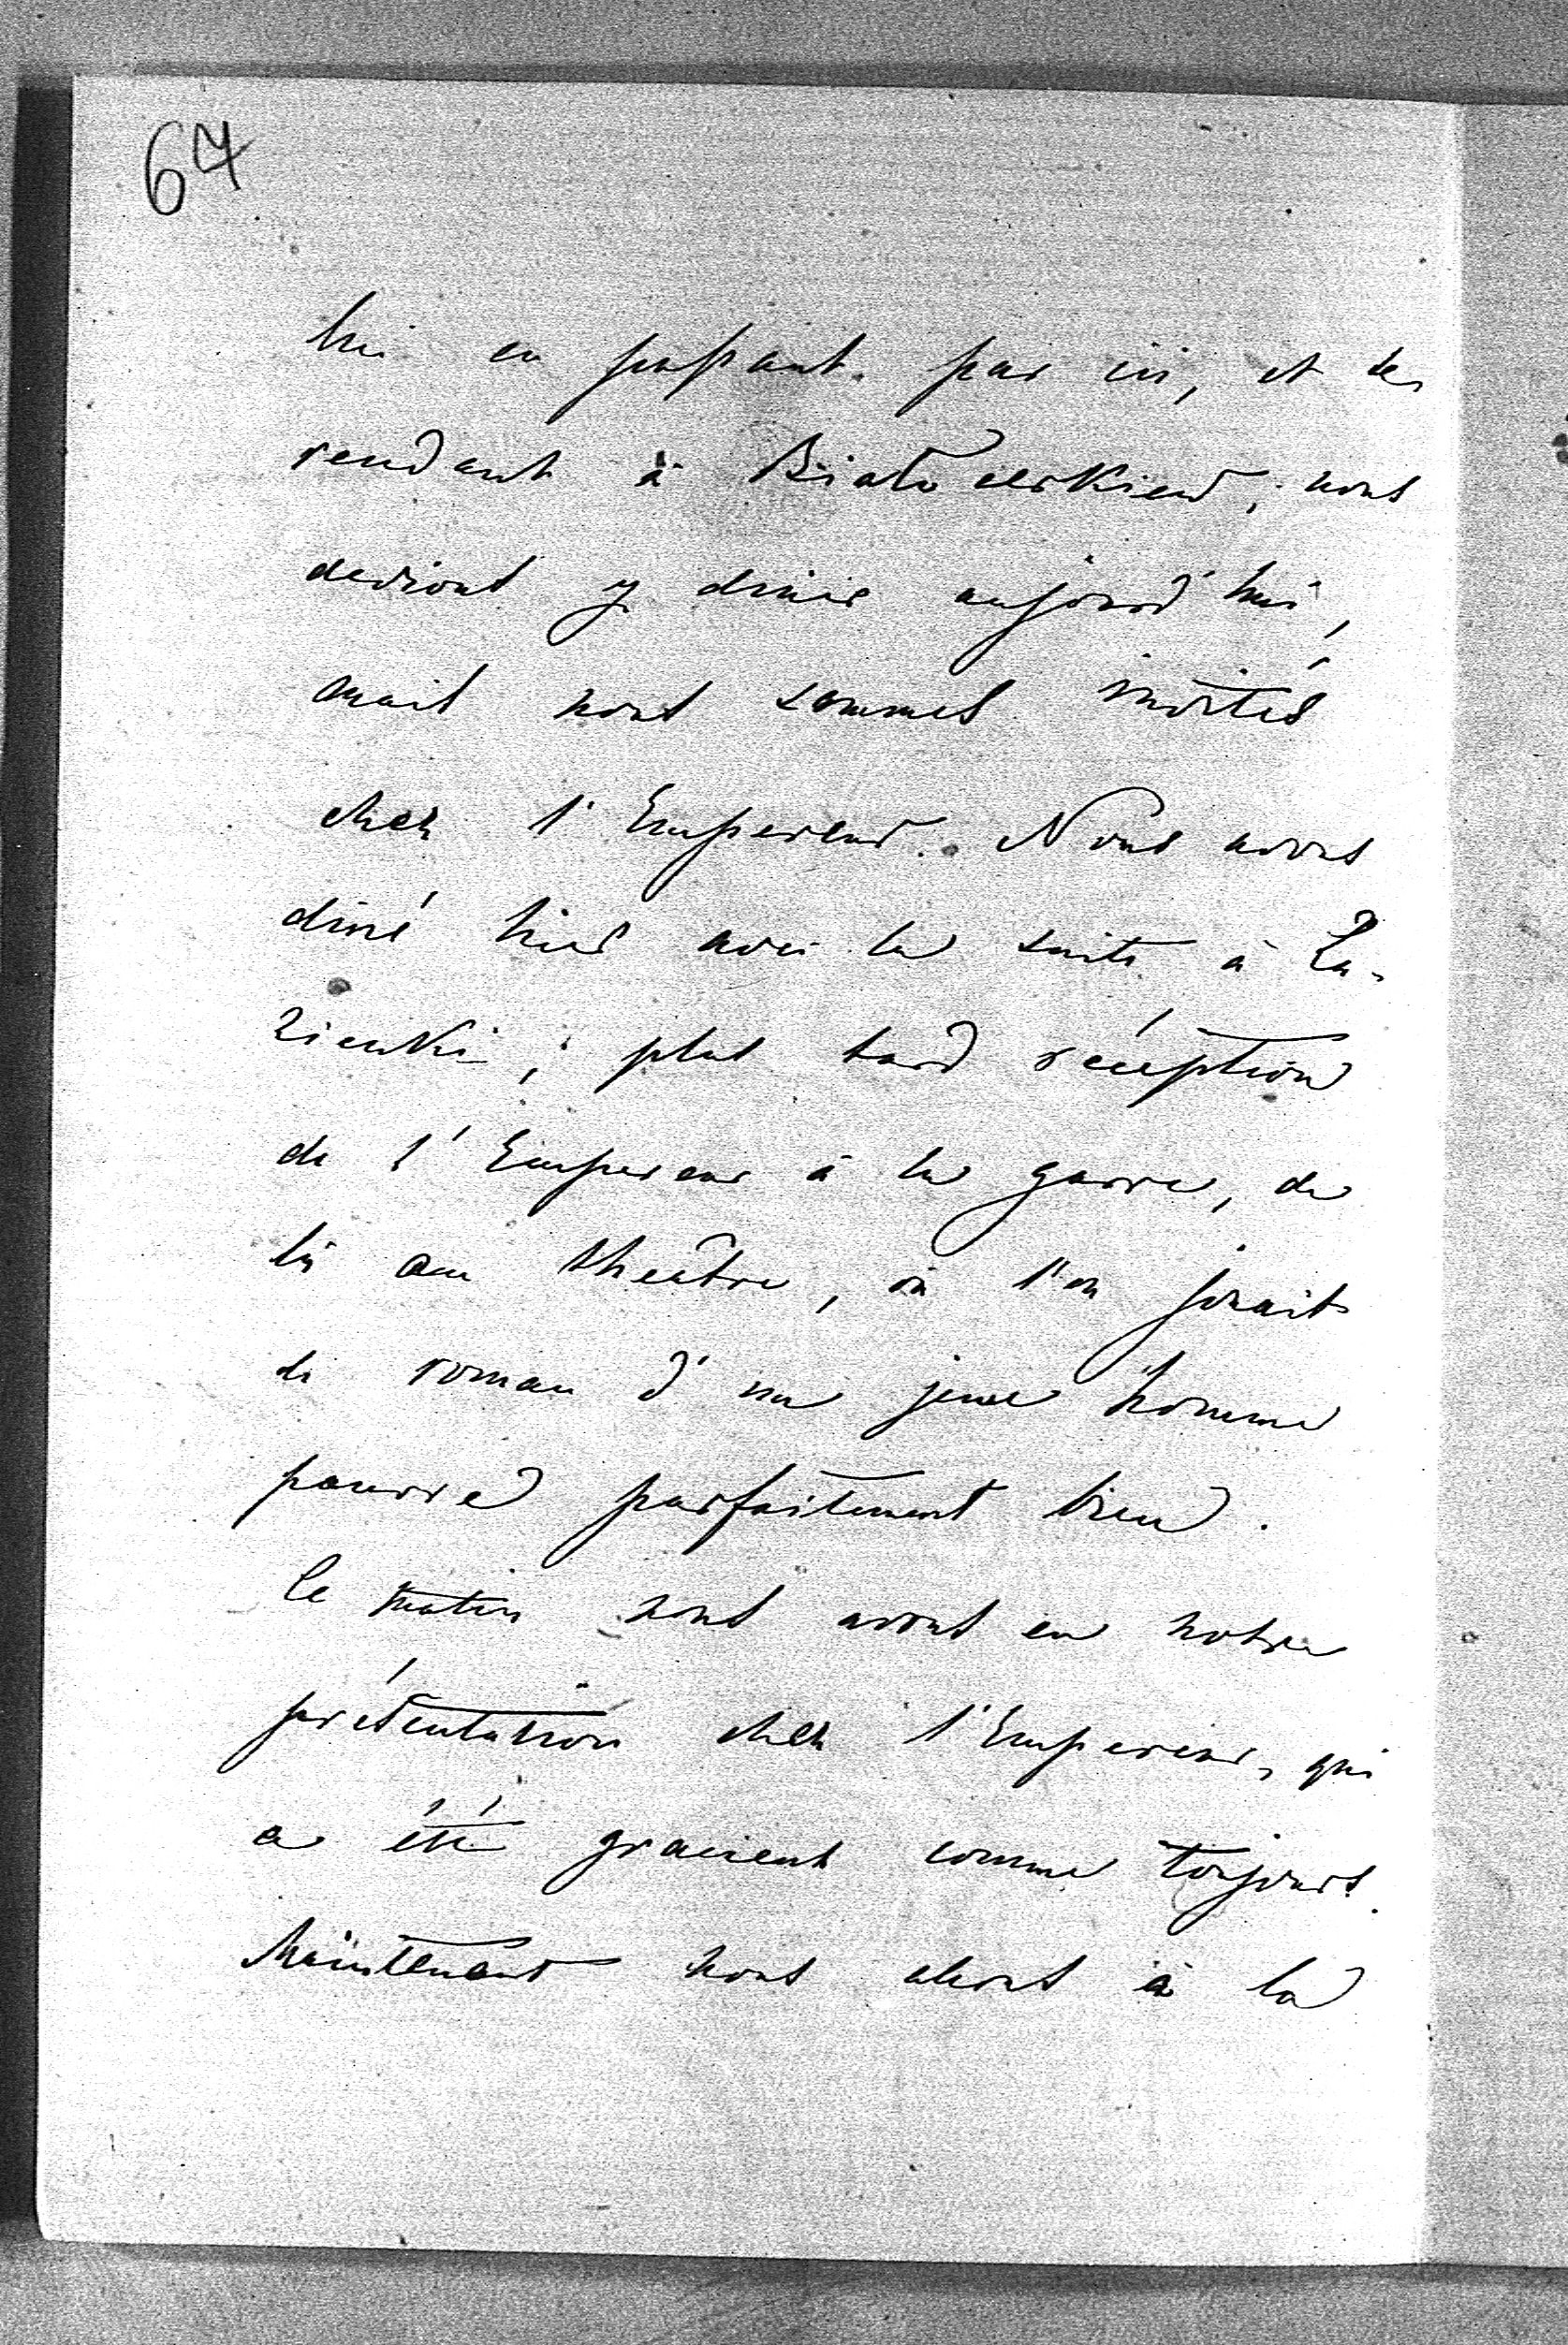 67
lui en passant par ici, et se
rendant à Białocerkiew, nous
devions y diner aujourd'hui,
mais nous sommes invités
chez l'Empereur. Nous avons
diné hier avec la suite à La-
zienki; plus tard réception
de l'Empereur à la garre, de
là au theâtre, où l'on jouait
le roman d'un jeune homme
pauvre parfaitement bien.
Le matin nous avons eu notre
présentation chez l'Empereur, qui
a été gracieux comme toujours.
Maintenant nous alons à la